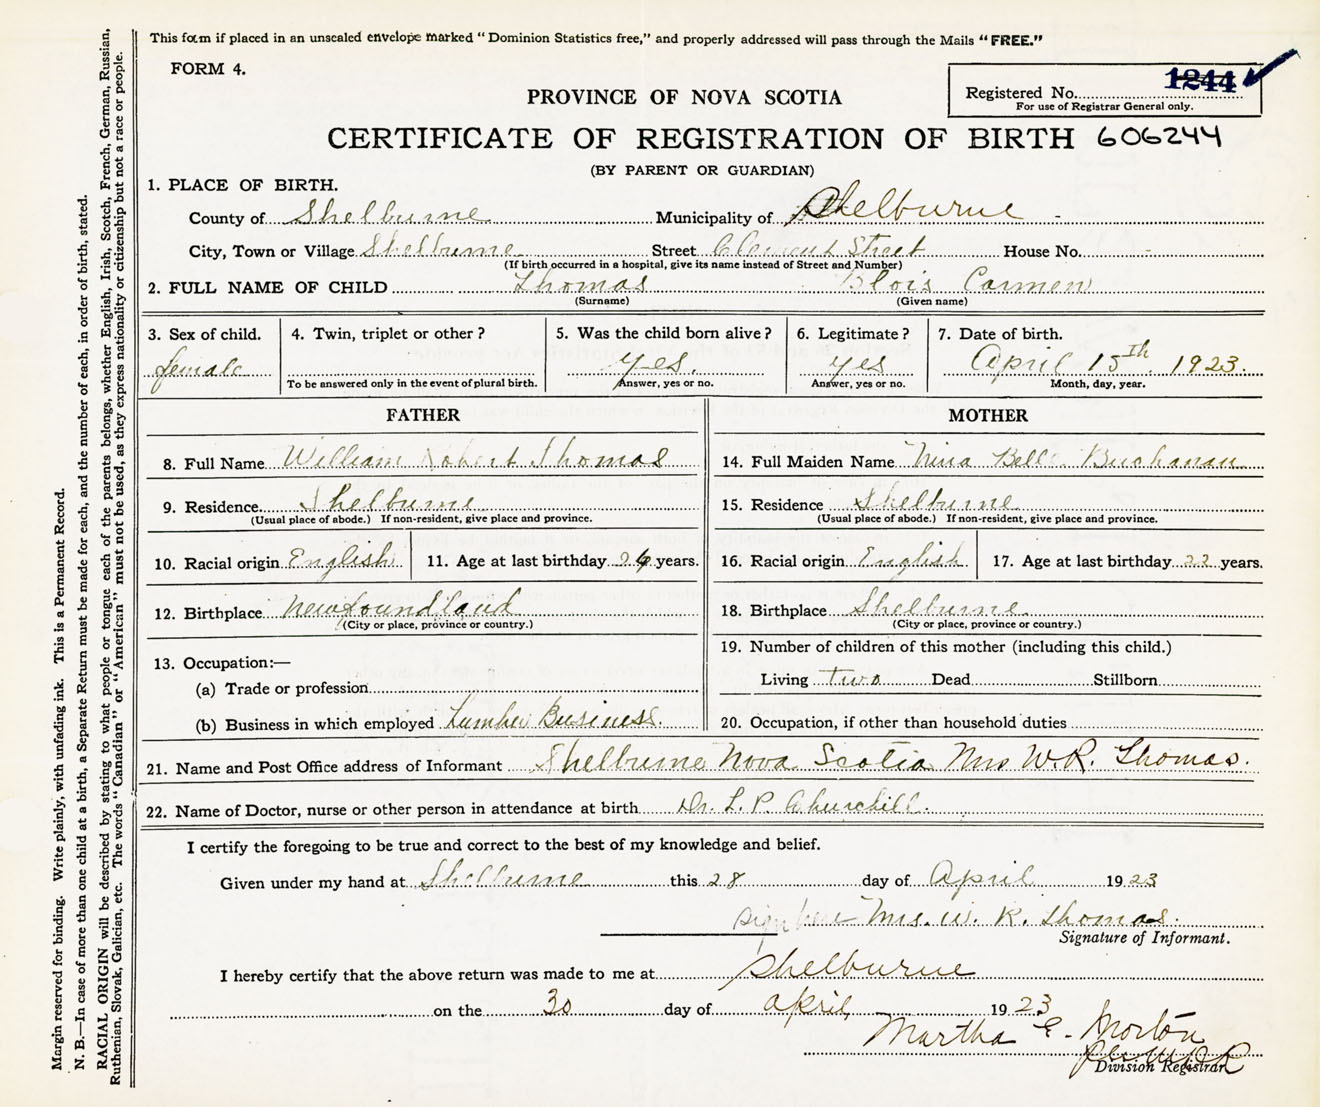 This form if placed in an unsealed envelope marked "Dominion Statistics free," and properly addressed will pass through the Mails "FREE."
FORM 4.
1244
Registered No.
For use of Registrar General only.
PROVINCE OF NOVA SCOTIA
CERTIFICATE OF REGISTRATION OF BIRTH 606244
(BY PARENT OR GUARDIAN)
1. PLACE OF BIRTH.
County of Shelburne Municipality of Shelburne
City, Town or Village Shelburne Street Clement Street House No. -
(If birth occurred in a hospital, give its name instead of Street and Number)
2. FULL NAME OF CHILD Thomas Blois Carmen
(Surname) (Given name)
3. Sex of child. 4. Twin, triplet or other? 5. Was the child born alive? 6. Legitimate? 7. Date of birth.
female yes. yes April 15th. 1923.
To be answered only in the event of plural birth. Answer, yes or no. Answer, yes or no. Month, day, year.
FATHER MOTHER
8. Full Name William Robert Thomas 14. Full Maiden Name Nina Belle Buchanan
9. Residence Shelburne 15. Residence Shelburne
(Usual place of abode.) If non-resident, give place and province. (Usual place of abode.) If non-resident, give place and province.
10. Racial origin English 11. Age at last birthday years. 16. Racial origin English 17. Age at last birthday 22 years.
12. Birthplace Newfoundland 18. Birthplace Shelburne
(City or place, province or country.) (City or place, province or country.)
19. Number of children of this mother (including this child.)
13. Occupation:—
Living two Dead Stillborn
(a) Trade or profession
(b) Business in which employed Lumber Business. 20. Occupation, if other than household duties
21. Name and Post Office address of Informant Shelburne Nova Scotia Mrs W.R. Thomas.
22. Name of Doctor, nurse or other person in attendance at birth Dr. L. P. Churchill.
I certify the foregoing to be true and correct to the best of my knowledge and belief.
Given under my hand at Shelburne this 28 day of April 1923
sign here Mrs. W. R. Thomas.
Signature of Informant.
I hereby certify that the above return was made to me at Shelburne
on the 30 day of april 1923
Martha E. Morton
Division Registrar
Margin reserved for binding. Write plainly, with unfading ink. This is a Permanent Record.
N. B.—In case of more than one child at a birth, a Separate Return must be made for each, and the number of each, in order of birth, stated.
RACIAL ORIGIN will be described by stating to what people or tongue each of the parents belongs, whether English, Irish, Scotch, French, German, Russian,
Ruthenian, Slovak, Galician, etc. The words "Canadian" or "American" must not be used, as they express nationality or citizenship but not a race or people.